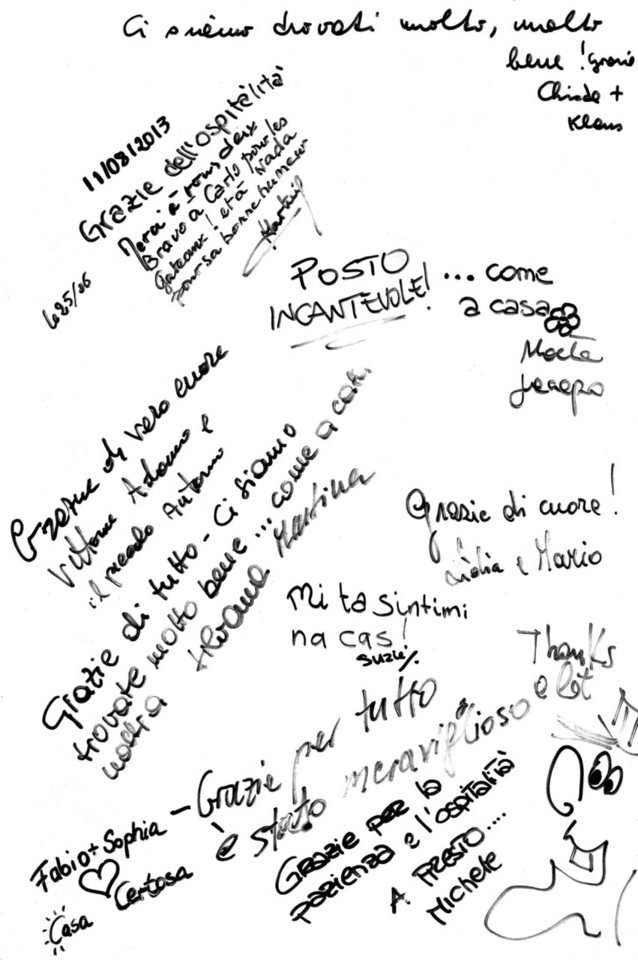 Ci siamo trovati molto, molto
bene! Grazie
+
Klaus
11/08/2013
Grazie dell'ospitalità
à vous deux
Bravo a Carlo pour les
gateaux! et à Nada
pour sa bonne humeur
POSTO
INCANTEVOLE!
... come
a casa
Grazie di vero cuore
e
il piccolo Antonio
Grazie di tutto - Ci siamo
trovate molto bene... come a casa
nostra
Martina
Grazie di cuore!
Lidia e Mario
Mi ta sintimi
na cas!
Suzie
Thanks
e lot
- Grazie per tutto
è stato meraviglioso
Fabio + Sophia
Casa Certosa
Grazie per la
pazienza e l'ospitalità
A PRESTO....
Michele